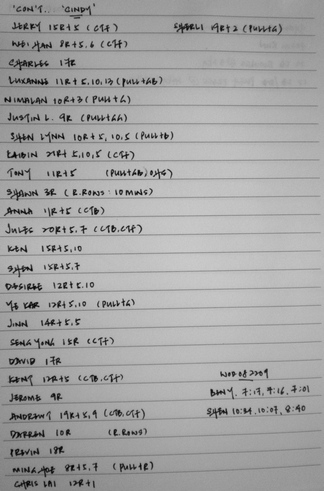 'CON'T.. 'CINDY'
JERRY 15R+5 (CTF) SHERLI 19R+2 (PULL+G)
WEI HAN 8R+5.6 (CTF)
CHARLES 17R
LUXANNE 11R+5,10,13 (PULL+GB)
NIMALAN 10R+3 (PULL+G)
JUSTIN L. 9R (PULL+GG)
SHEN LYNN 10R+5,10,5 (PULL+B)
21R+5,10,5 (CTF)
TONY 11R+5 (PULL+GB)
SHAWN 3R (R.ROWS. 10MINS)
ANNA 11R+5 (CTB)
JULES 20R+5,7 (CTB,CTF)
KEN 15R+5,10
SHEN 15R+5,7
DESIREE 12R+5,10
YE KAR 12R+5,10 (PULL+G)
JINN 14R+5,5
SENG YONG 15R (CTF)
DAVID 17R
KENT 17R+5 (CTB,CTF) WOD 082209
JEROME 9R BENY. 7:17, 9:16, 7:01
ANDREWT 19R+5,9 (CTB,CTF) SHEN 10:24, 10:07, 8:40
DARREN 10R (R.ROWS)
PREVIN 18R
MING 8R+5,7 (PULL+R)
CHRIS LAI 12R+1